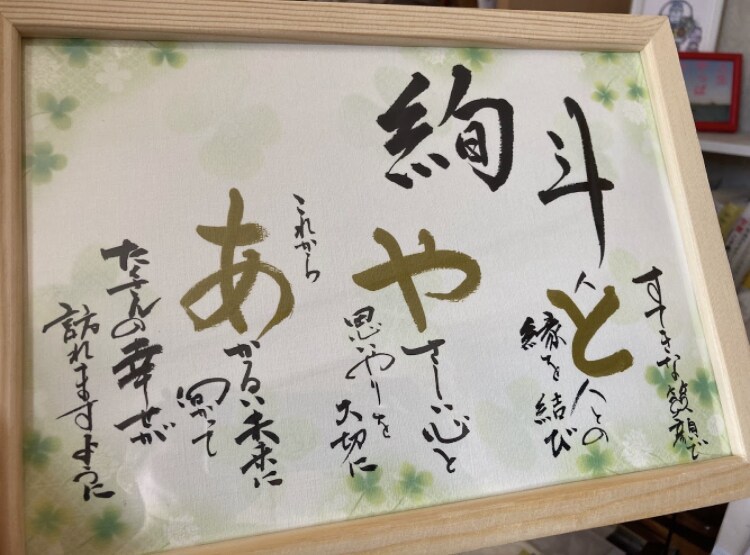 斗
絢
すてきな笑顔で
人と人との
縁を結び
やさしい心と
思いやりを
大切に
これから
あかるい未来に
向かって
たくさんの幸せが
訪れますように